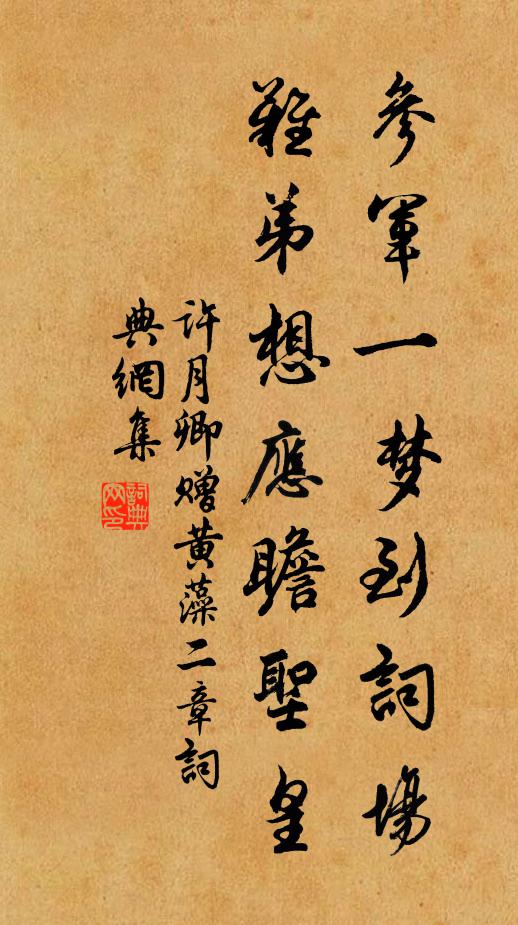 參軍一梦到詞場
難弟想應瞻聖皇
許月卿贈黃藻二章詞
典網集
詞典
网印